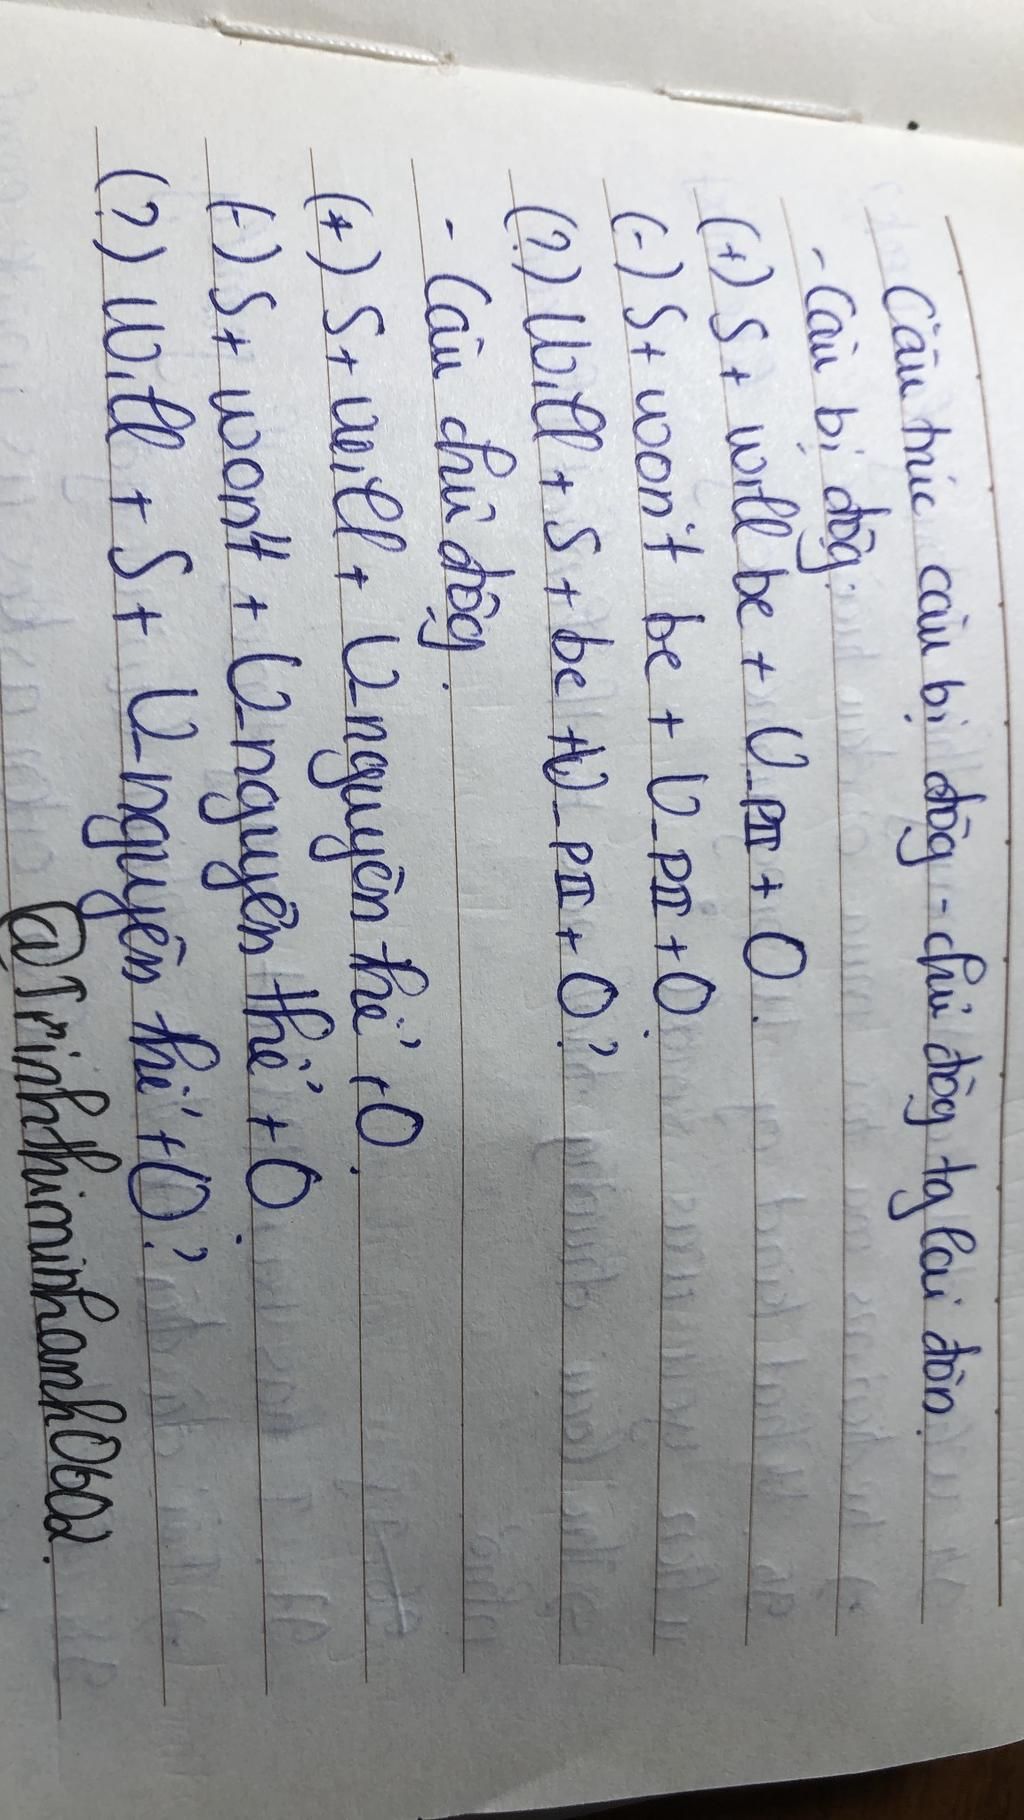 Câu trúc câu bị độg - chủ độg tg lai đơn.
- Câu bị độg:
(+) S + will be + V_PII + O.
(-) S + won't be + V_PII + O.
(?) Will + S + be + V_PII + O?
- Câu chủ độg.
(+) S + will + V_nguyên thể + O.
(-) S + won't + V_nguyên thể + O.
(?) Will + S + V_nguyên thể + O?
@Trinhthiminhanh0602.